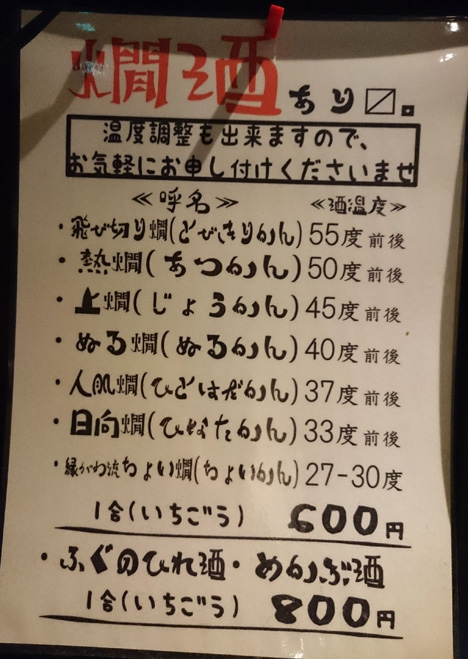 燗酒あり〼。
温度調整も出来ますので、
お気軽にお申し付けくださいませ
≪呼名≫ ≪酒温度≫
・飛び切り燗(とびきりかん) 55度前後
・熱燗(あつかん) 50度前後
・上燗(じょうかん) 45度前後
・ぬる燗(ぬるかん) 40度前後
・人肌燗(ひとはだかん) 37度前後
・日向燗(ひなたかん) 33度前後
・縁がわ流ちょい燗(ちょいかん) 27-30度
1合(いちごう) 600円
・ふぐのひれ酒・めかぶ酒
1合(いちごう) 800円